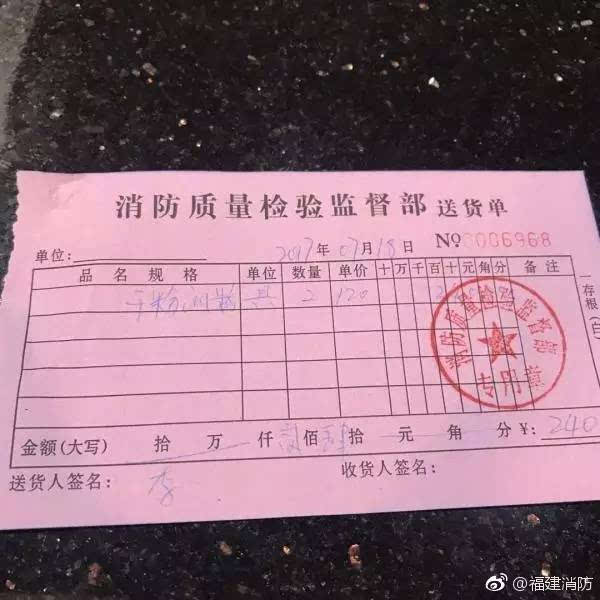 消防质量检验监督部 送货单
单位： 2017年07月18日 №0006968
品名规格 单位 数量 单价 十 万 千 百 十 元 角 分 备注
干粉 具 2 120 2
金额(大写) 拾 万 仟 贰佰 肆拾 元 角 分 ¥: 240
送货人签名： 李 收货人签名：
一存根(白)
消防质量检验监督部
专用章
@福建消防